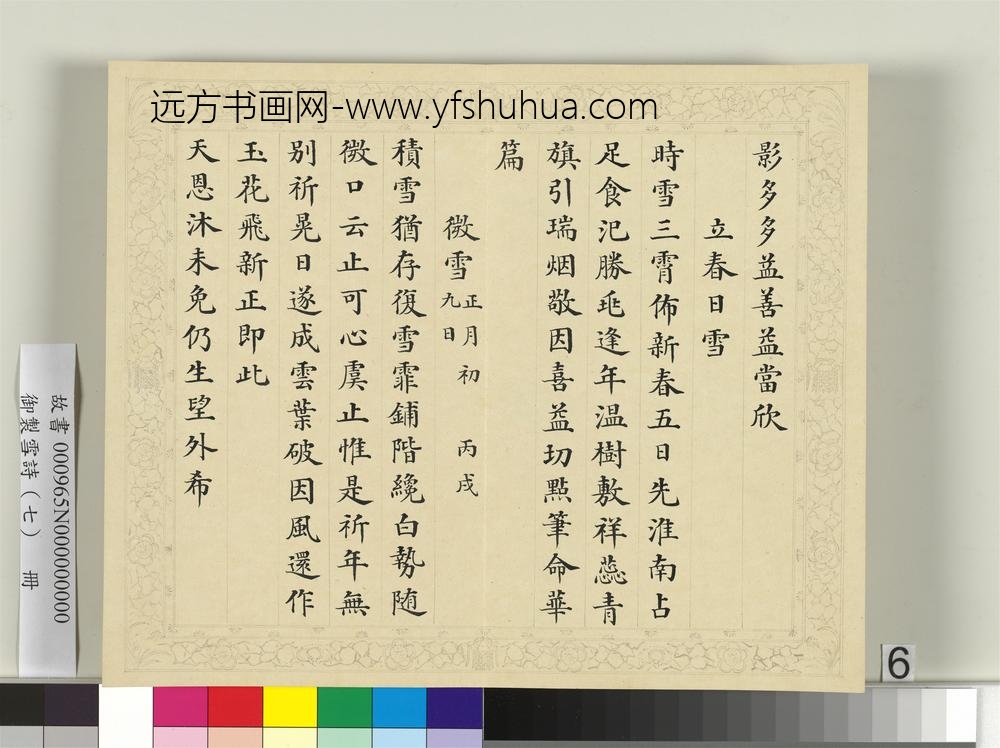 远方书画网-www.yfshuhua.com
影多多益善益當欣
立春日雪
時雪三霄佈新春五日先淮南占
足食氾勝兆逢年温樹敷祥蕊青
旗引瑞烟敬因喜益切點筆命華
篇
微雪 正月初九日 丙戌
積雪猶存復雪霏鋪階纔白勢随
微口云止可心虞止惟是祈年無
别祈晃日遂成雲葉破因風還作
玉花飛新正即此
天恩沐未免仍生望外希
故書 000965N000000000
御製雪詩（七） 冊
6